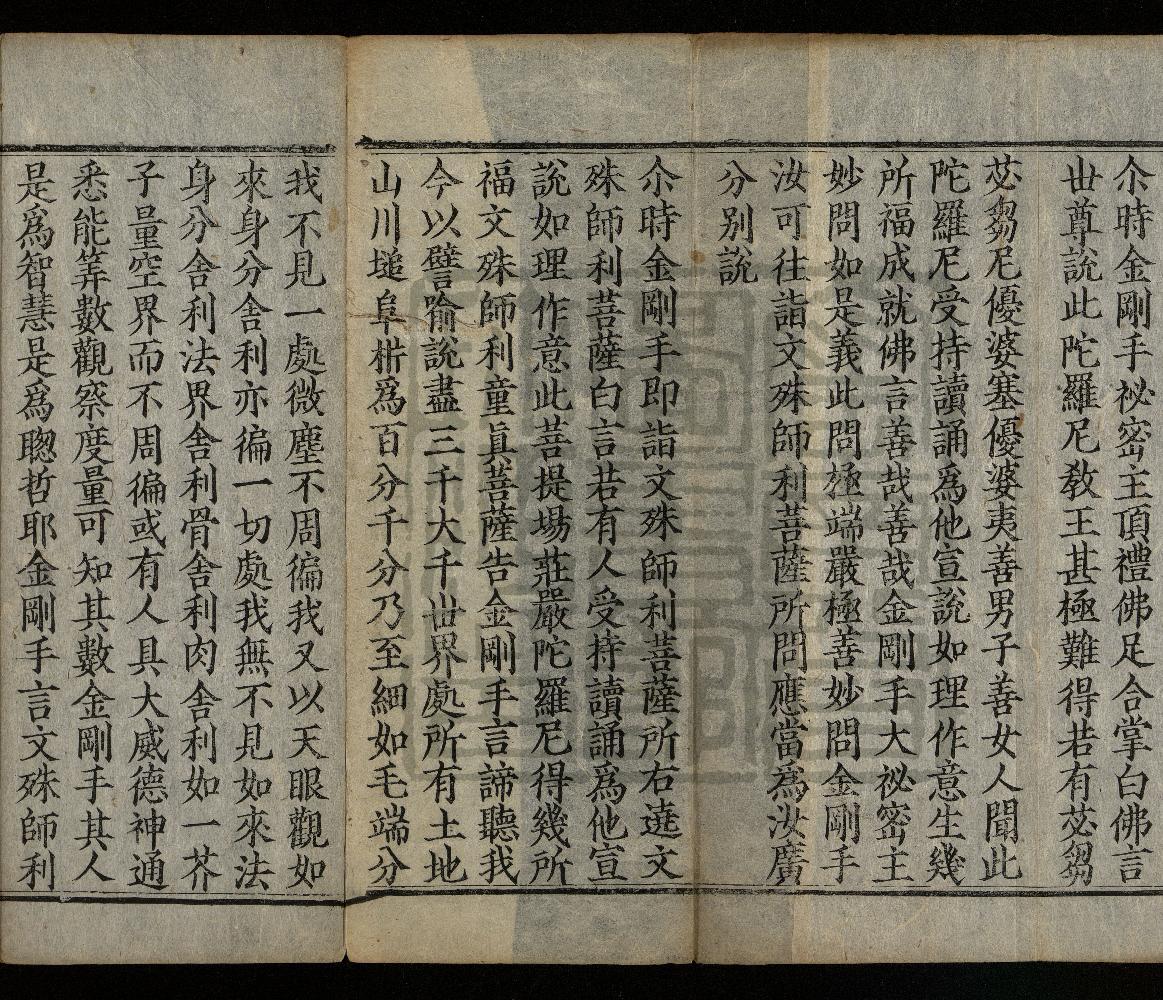 尒時金剛手祕密主頂禮佛足合掌白佛言
世尊說此陀羅尼教王甚極難得若有苾芻
苾芻尼優婆塞優婆夷善男子善女人聞此
陀羅尼受持讀誦為他宣說如理作意生幾
所福成就佛言善哉善哉金剛手大祕密主
妙問如是義此問極端嚴極善妙問金剛手
汝可往詣文殊師利菩薩所問應當為汝廣
分别說
尒時金剛手即詣文殊師利菩薩所右遶文
殊師利菩薩白言若有人受持讀誦為他宣
說如理作意此菩提場莊嚴陀羅尼得幾所
福文殊師利童真菩薩告金剛手言諦聽我
今以譬喻說盡三千大千世界處所有土地
山川塠阜枿為百分千分乃至細如毛端分
我不見一處微塵不周徧我又以天眼觀如
來身分舍利亦徧一切處我無不見如來法
身分舍利法界舍利骨舍利肉舍利如一芥
子量空界而不周徧或有人具大威德神通
悉能筭數觀察度量可知其數金剛手其人
是為智慧是為聰哲耶金剛手言文殊師利